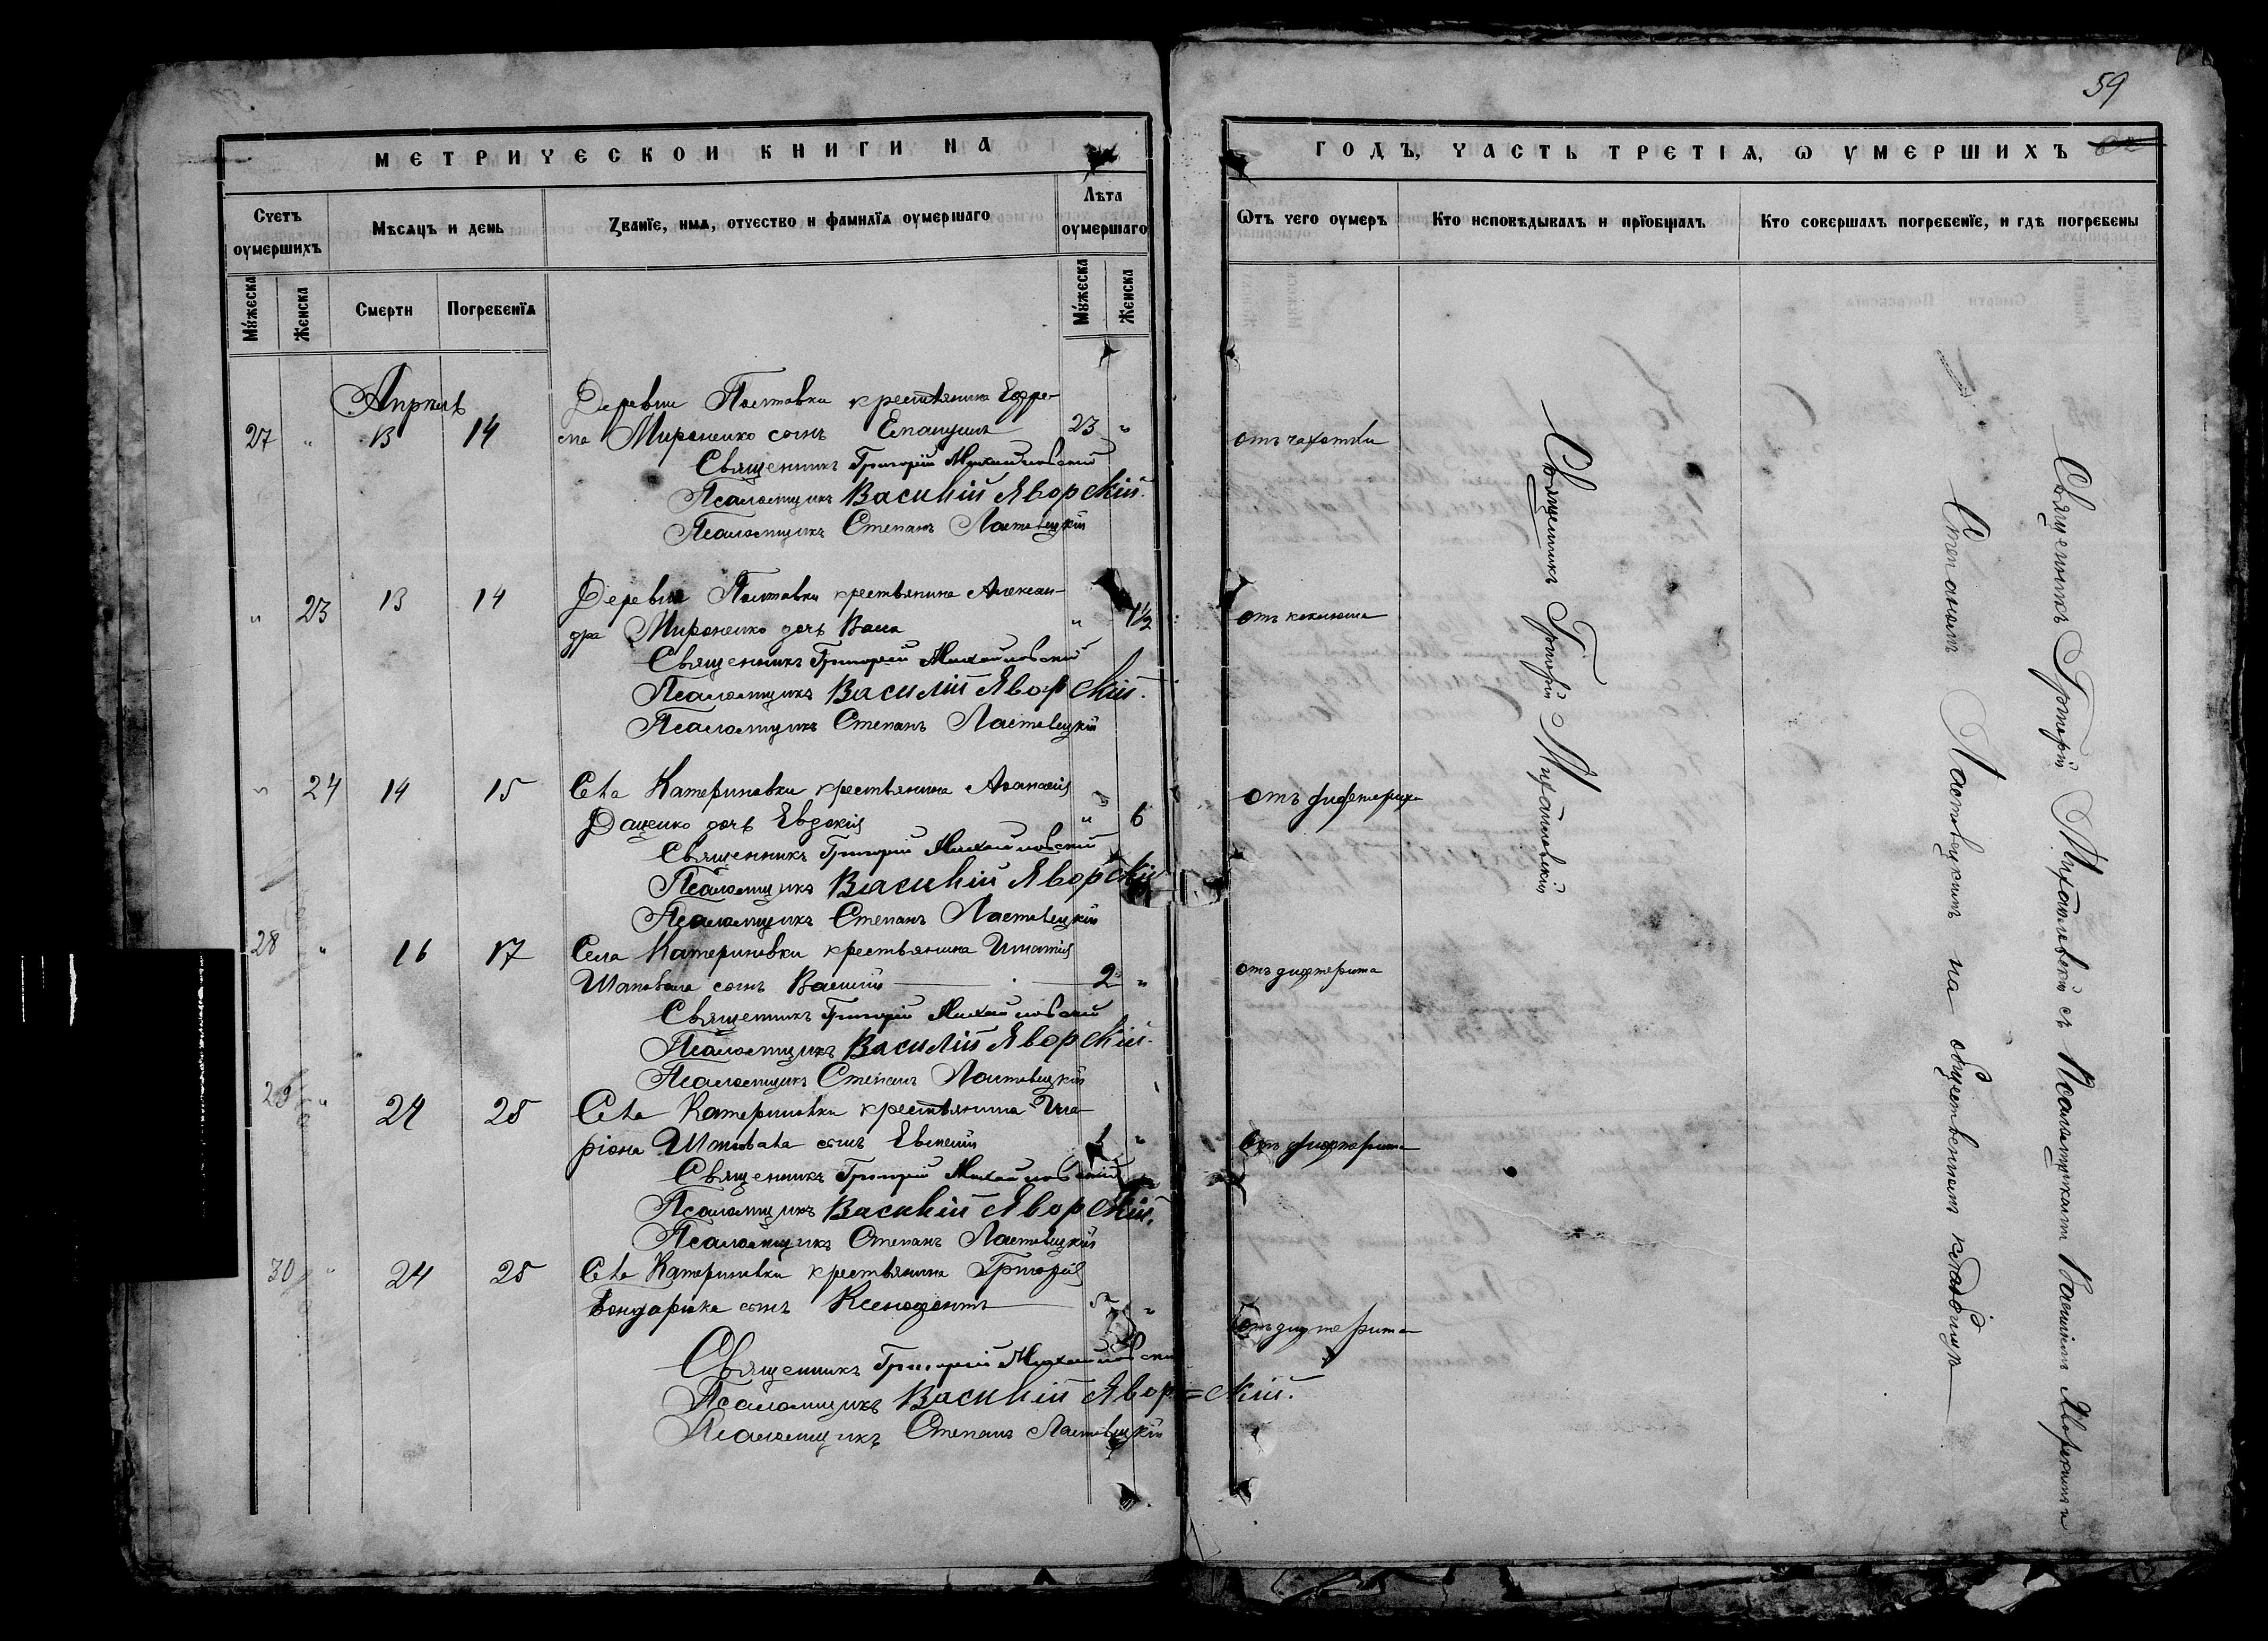 59
МЕТРИЧЕСКОЙ КНИГИ НА
Счетъ оумершихъ
Мѣсяцъ и день
Званїе, имя, отчество и фамилїя оумершаго
Лѣта оумершаго
Мужеска
Женска
Смерти
Погребенїя
Мужеска
Женска
Апрель
27 " 13 14 Деревни Полтавки крестьянина Ефре-
ма Мироненко сынъ 23 "
Священникъ Григорій Михайловскій
Псаломщикъ Василій Яворскій.
Псаломщикъ Степанъ Ластовецкій
" 23 13 14 Деревни Полтавки крестьянина Алексан-
дра Мироненко дочь " 1½
Священникъ Григорій Михайловскій
Псаломщикъ Василій Яворскій.
Псаломщикъ Степанъ Ластовецкій
" 24 14 15 Села Катериновки крестьянина Аѳанасія
Даценко дочь Евдокія " 6
Священникъ Григорій Михайловскій
Псаломщикъ Василій Яворскій
Псаломщикъ Степанъ Ластовецкій
28 " 16 17 Села Катериновки крестьянина Игнатія
Шаповала сынъ Василій 2 "
Священникъ Григорій Михайловскій
Псаломщикъ Василій Яворскій.
Псаломщикъ Степанъ Ластовецкій
29 " 24 25 Села Катериновки крестьянина Ила-
ріона Шаповала сынъ Евгеній 1 "
Священникъ Григорій Михайловскій
Псаломщикъ Василій Яворскій.
Псаломщикъ Степанъ Ластовецкій
30 " 24 25 Села Катериновки крестьянина Григорія
Бондарика сынъ Ксенофонтъ "
Священникъ Григорій Михайловскій
Псаломщикъ Василій Явор=скій.
Псаломщикъ Степанъ Ластовецкій
ГОДЪ, ЧАСТЬ ТРЕТІЯ, Ѡ УМЕРШИХЪ
Ѿтъ чего оумеръ
Кто исповѣдывалъ и прїобщалъ
Кто совершалъ погребенїе, и гдѣ погребены
отъ чахотки
отъ коклюша
отъ дифтерита
отъ дифтерита
отъ дифтерита
отъ дифтерита
Священникъ Григорій Михайловскій
Священникъ Григорій Михайловскій съ Псаломщиками Василіемъ Яворскимъ и
Степаномъ Ластовецкимъ на общественномъ кладбищѣ